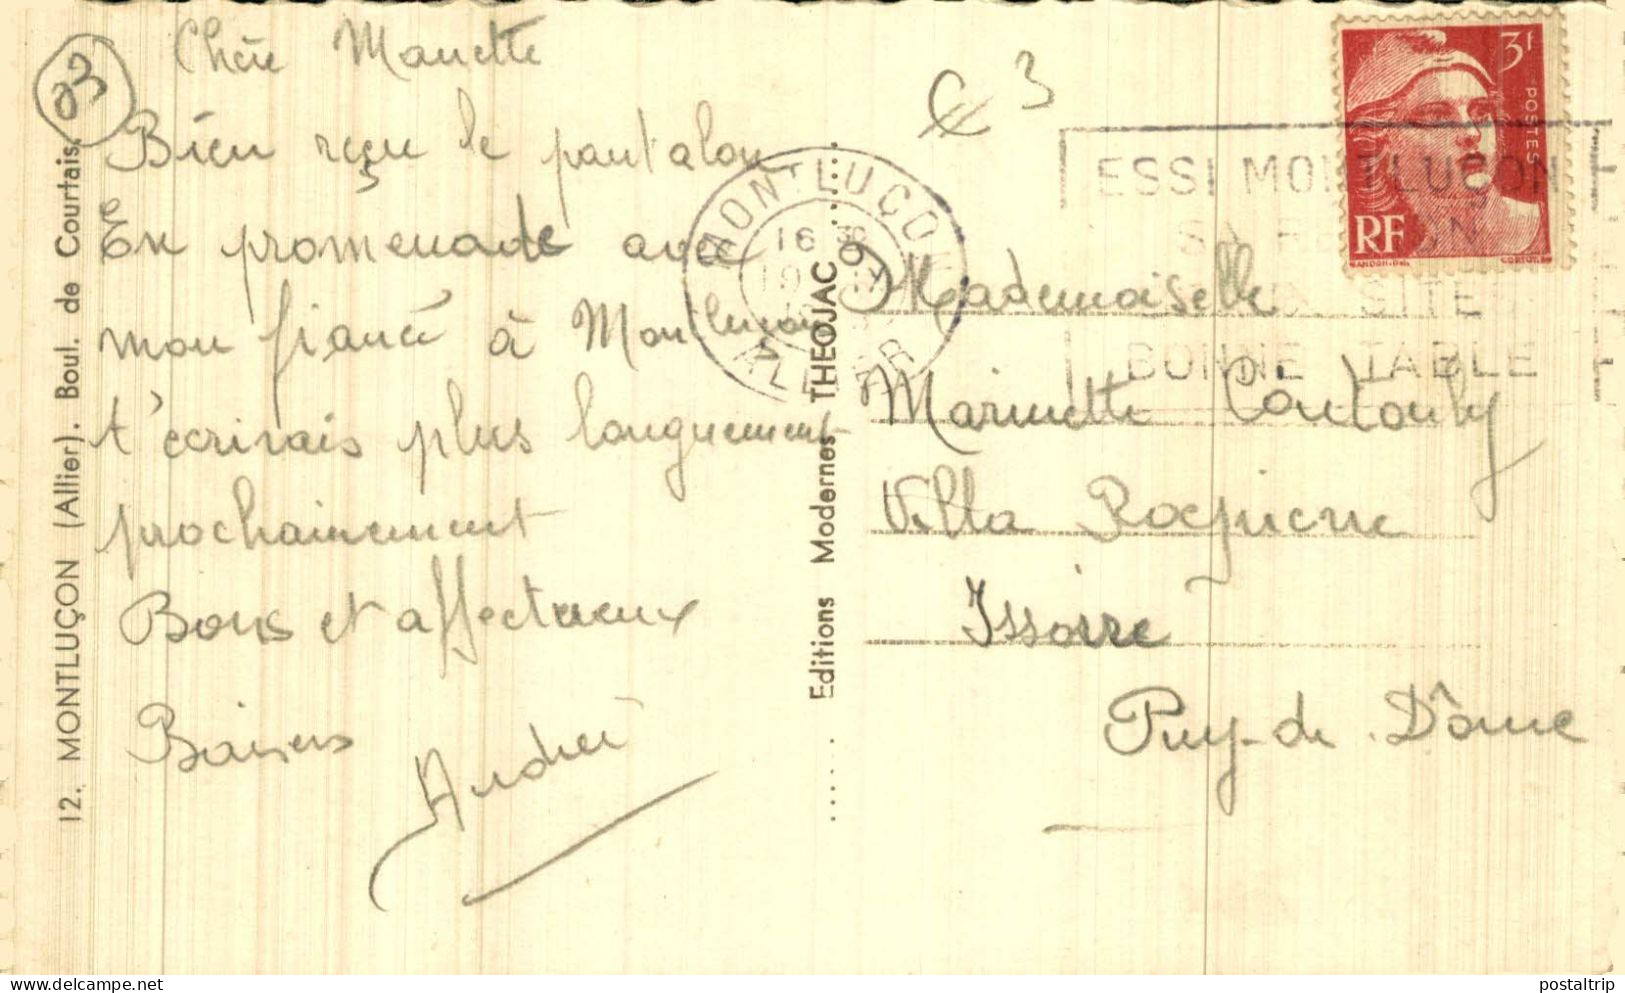 03
Chère Manette
Bien reçu le pantalon
En promenade avec
mon fiancé à Montluçon
t'écrirais plus longuement
prochainement
Bons et affectueux
Baisers
Andrée
12. MONTLUÇON (Allier). Boul. de Courtais.
Editions Modernes THEOJAC
MONTLUÇON
16 30
19
ALLIER
€ 3
ESSI MONTLUÇON
SA RÉGION
SITE
BONNE TABLE
3f
POSTES
RF
GANDON-DEL.
CORTOT-SC
Mademoiselle
Marinette
Villa
Issoire
Puy-de-Dôme
postaltrip